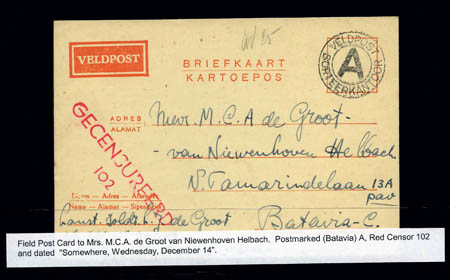 VELDPOST
BRIEFKAART
KARTOEPOS
VELDPOST
A
SORTEERKANTOOR
ADRES
ALAMAT
Mevr. M.C.A de Groot-
-van Niewenhoven Helbach
N. Tamarindelaan 13A
pav
Batavia-C.
GECENSUREERD
102
Naam – Adres – Afzender
Name – Alamat – Sipengirim
de Groot
Field Post Card to Mrs. M.C.A. de Groot van Niewenhoven Helbach. Postmarked (Batavia) A, Red Censor 102
and dated "Somewhere, Wednesday, December 14".